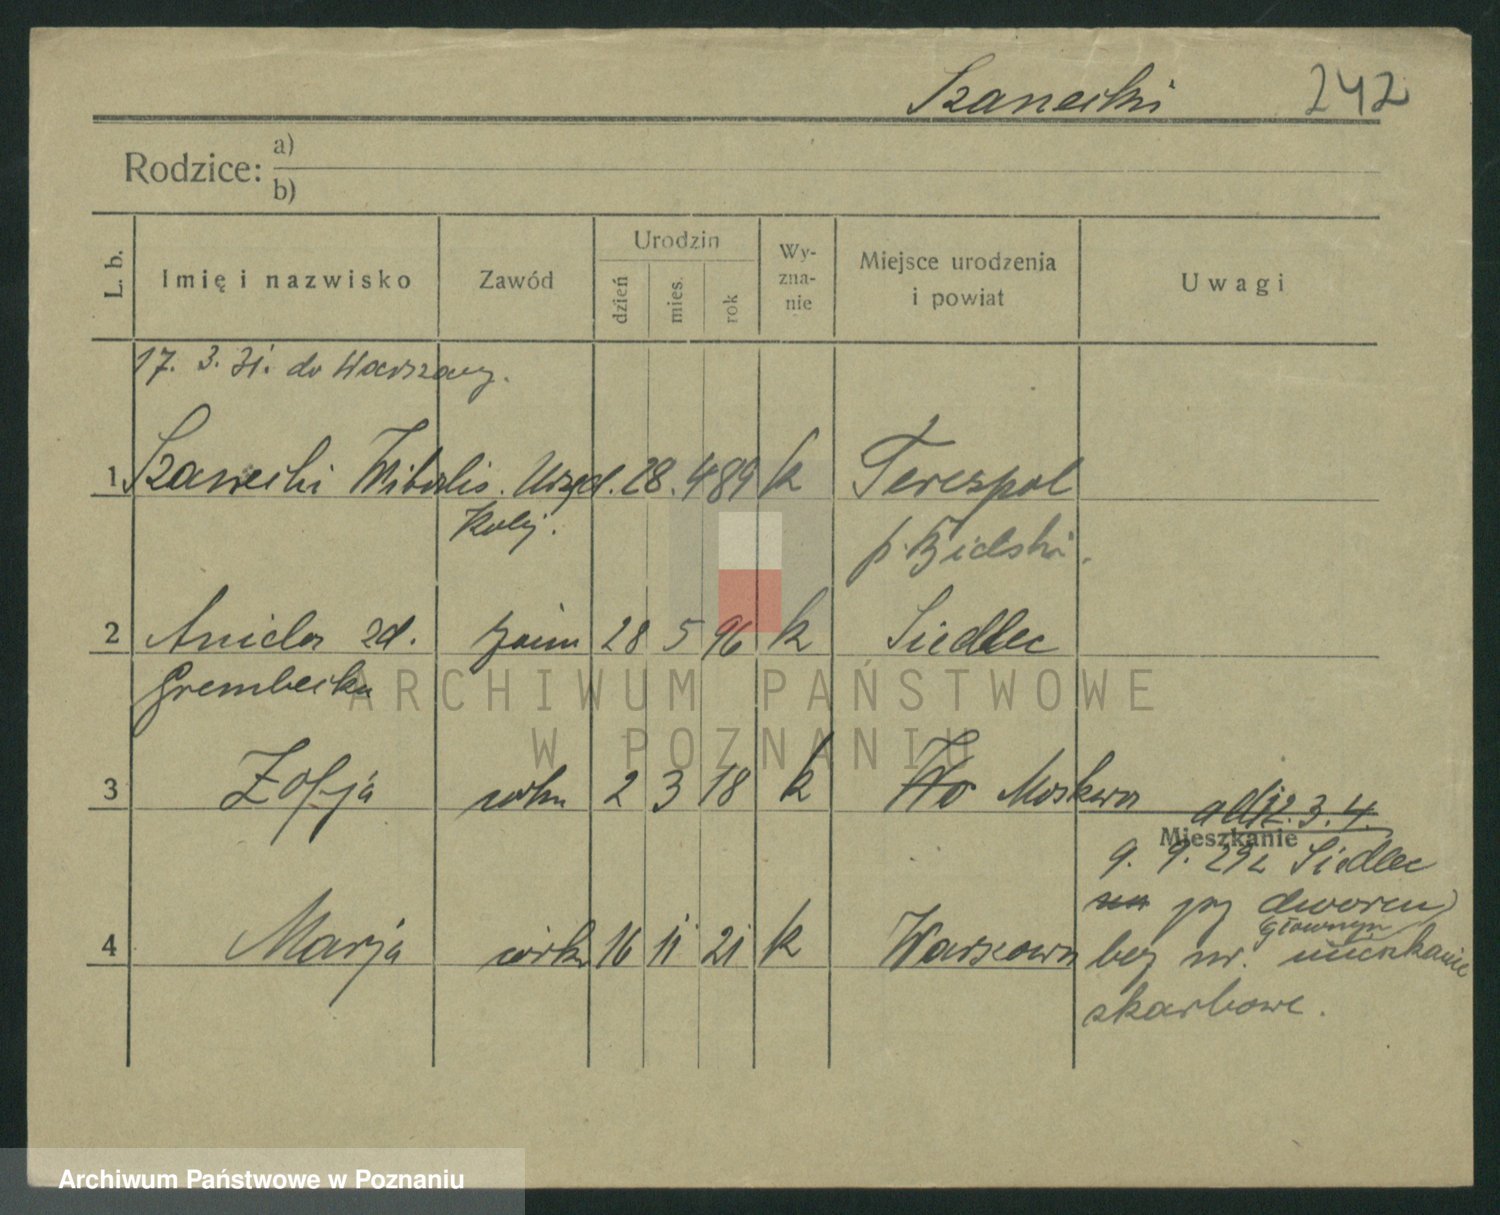 Szanecki 242
Rodzice: a)
b)
L. b. Imię i nazwisko Zawód Urodzin dzień mies. rok Wy-zna-nie Miejsce urodzenia i powiat Uwagi
17. 3. 31. do Warszawy.
1 Szanecki Witalis. Urzęd. 28. 4 89 k Terespol
Kolej. p. Bielski.
2 Aniela zd. 28 5 96 k Siedlec
Grembecka
ARCHIWUM PAŃSTWOWE
W POZNANIU
3 Zofja córka 2 3 18 k Wo Moskwa
ad 1. 2. 3. 4.
Mieszkanie
9. 9. 29 z Siedlec
przy dworcu
głównym
4 Marja córka 16 11 21 k Warszawa bez nr. mieszkanie
skarbowe.
Archiwum Państwowe w Poznaniu